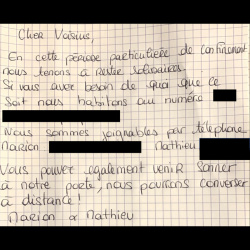 Cher Voisins,
En cette période particulière de confinement
nous tenons à rester solidaires.
Si vous avez besoin de quoi que ce
soit nous habitons au numéro
Nous sommes joignables par téléphone
Marion Mathieu
Vous pouvez également venir sonner
à notre porte, nous pourrons converser
à distance!
Marion & Mathieu